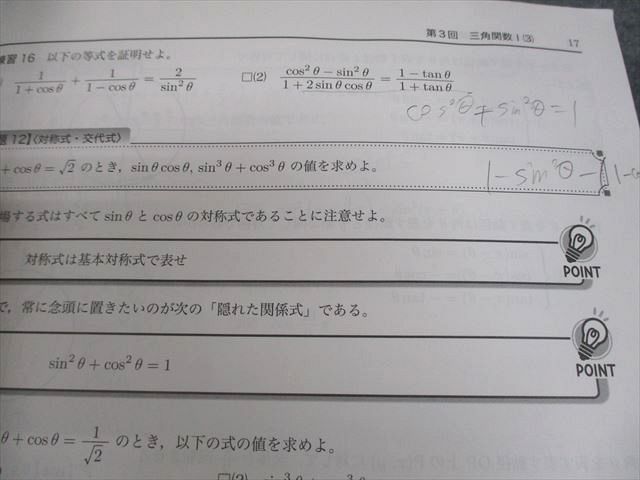 第3回 三角関数I(3) 17
練習16 以下の等式を証明せよ。
1/(1+cosθ) + 1/(1−cosθ) = 2/sin²θ □(2) (cos²θ−sin²θ)/(1+2sinθcosθ) = (1−tanθ)/(1+tanθ)
cos²θ+sin²θ=1
12】〈対称式・交代式〉
+cosθ=√2 のとき，sinθcosθ, sin³θ+cos³θ の値を求めよ。
1−sin²θ−
場する式はすべて sinθ と cosθ の対称式であることに注意せよ。
対称式は基本対称式で表せ
POINT
で，常に念頭に置きたいのが次の「隠れた関係式」である。
sin²θ+cos²θ=1
POINT
θ+cosθ=1/√2 のとき，以下の式の値を求めよ。
□(2)